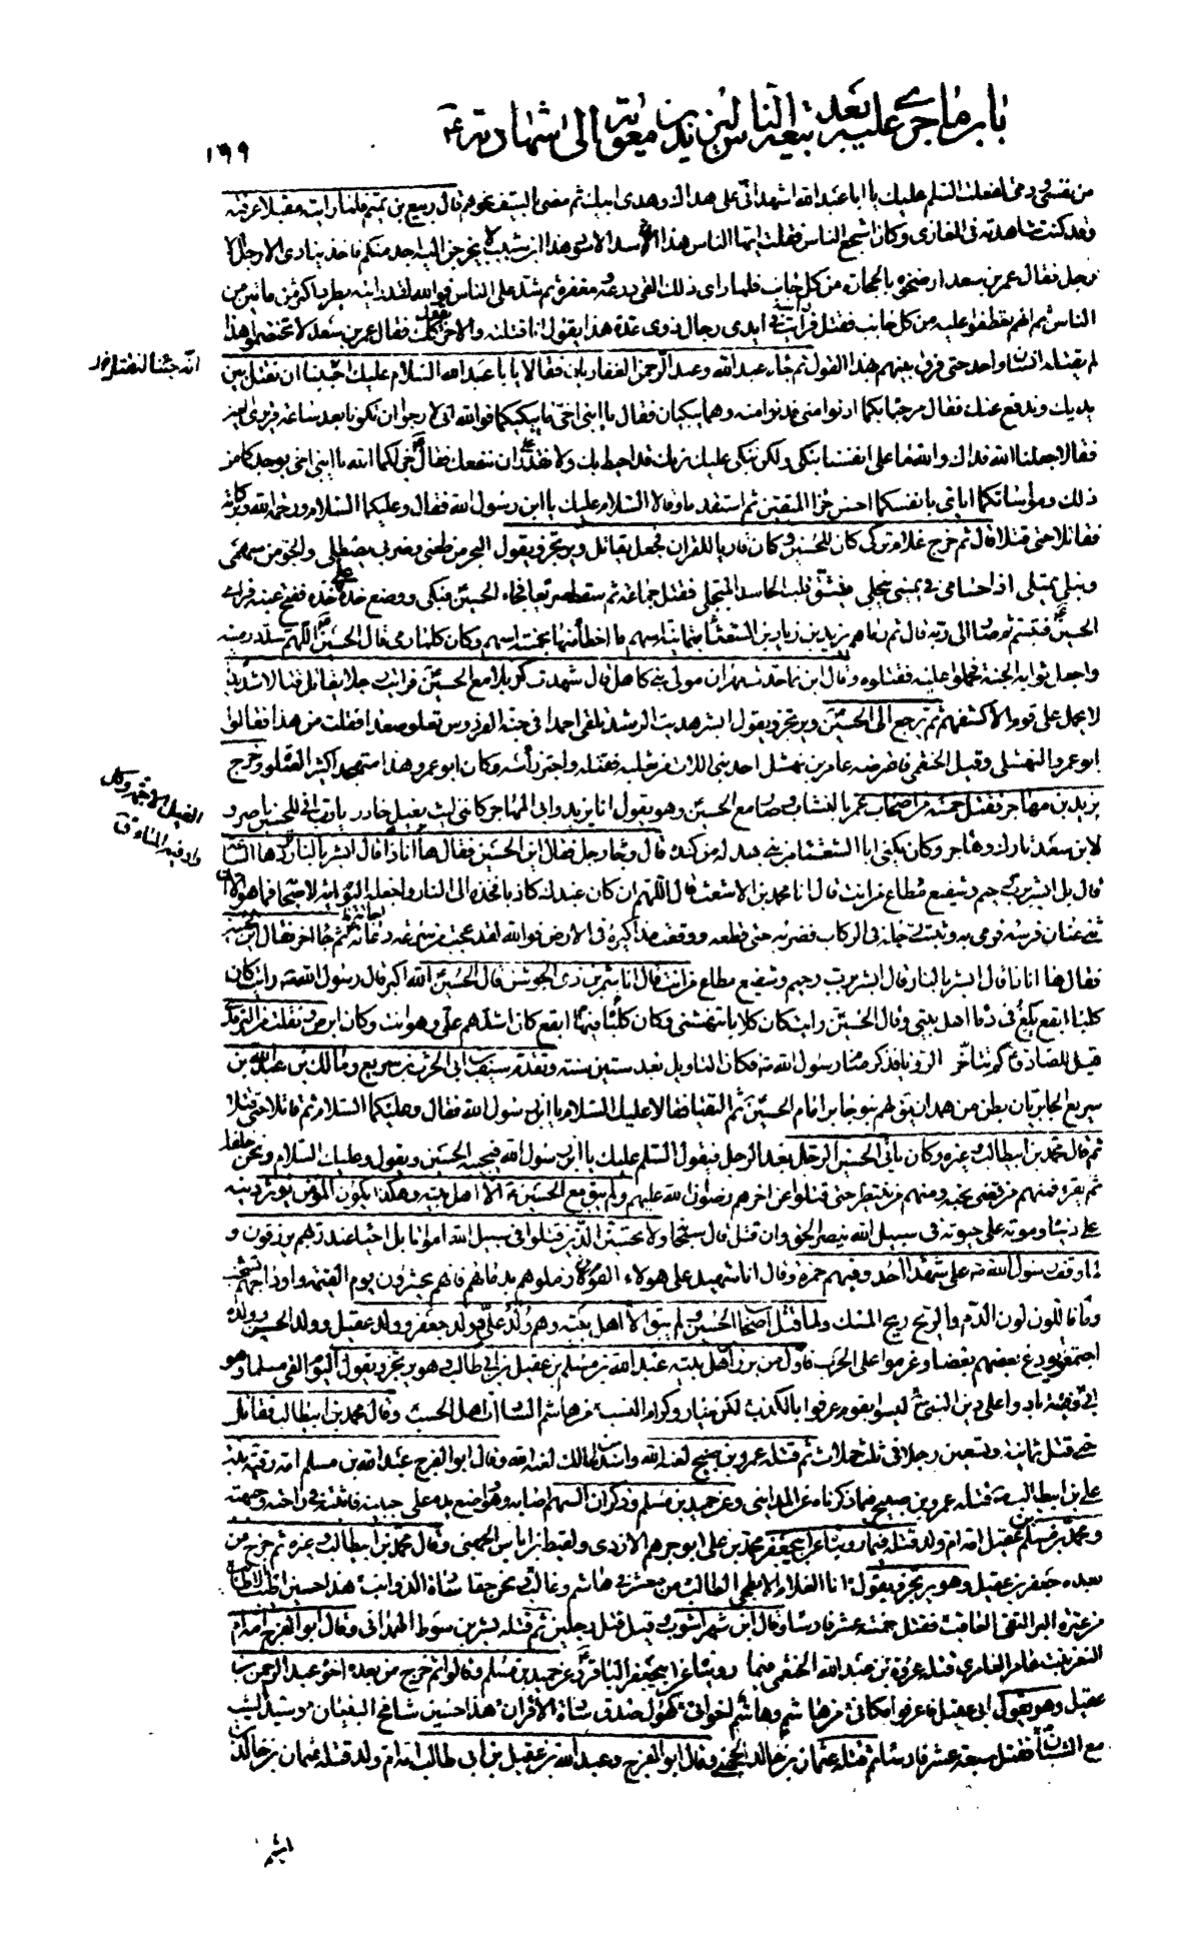 باب ما جرى عليه بعد بيعة الناس ليزيد بن معوية الى شهادته ع
١٩٩
من نفسي ودمى لفعلت السلم عليك يا ابا عبد الله اشهد انى على هداك وهدى ابيك ثم مضى بالسيف نحوهم قال ربيع بن تميم فلما رايته مقبلا عرفته
وقد كنت شاهدته في المغازى وكان اشجع الناس فقلت ايها الناس هذا الاسد الاسود هذا ابن شبيب لا يخرجن اليه احد منكم فاخذ ينادى الا رجل الا
رجل فقال عمر بن سعد ارضخوه بالحجارة من كل جانب فلما راى ذلك القى درعه ومغفره ثم شد على الناس فوالله لقد رايته يطرد اكثر من مائتين من
الناس ثم انهم تعطفوا عليه من كل جانب فقتل فرايت راسه في ايدى رجال ذوى عدة هذا يقول انا قتلته والاخر يقول كذلك فقال عمر بن سعد لا تختصموا هذا
لم يقتله انسان واحد حتى فرق بينهم بهذا القول ثم جاءه عبد الله وعبد الرحمن الغفاريان فقالا يا ابا عبد الله السلام عليك احببنا ان نقتل بين
انه جئنا لنقتل
يديك وندفع عنك فقال مرحبا بكما ادنوا منى فدنوا منه وهما يبكيان فقال يا ابنى اخى ما يبكيكما فوالله انى لارجوا ان تكونا بعد ساعة قريرى العين
فقالا جعلنا الله فداك والله ما على انفسنا نبكى ولكن نبكى عليك نراك قد احيط بك ولا نقدر ان ننفعك فقال جزاكما الله يا ابنى اخى بوجدكما من
ذلك ومواساتكما اياى بانفسكما احسن جزاء المتقين ثم استقدما وقالا السلام عليك يا ابن رسول الله فقال وعليكما السلام ورحمة الله وبركاته
فقاتلا حتى قتلا قال ثم خرج غلام تركى كان للحسين ع وكان قاريا للقران فجعل يقاتل ويرتجز ويقول البحر من طعنى وضربى يصطلى والجو من سهمى
ونبلى يمتلى اذا حسامى في يمينى ينجلى ينشق قلب الحاسد المبجل فقتل جماعة ثم سقط صريعا فجاءه الحسين فبكى ووضع خده على خده ففتح عينه فراى
الحسين ع فتبسم ثم صار الى ربه قال ثم رماهم يزيد بن زياد بن الشعثاء بثمانية اسهم ما اخطا منها بخمسة اسهم وكان كلما رمى قال الحسين ع اللهم سدد رميته
واجعل ثوابه الجنة فحملوا عليه فقتلوه وقال ابن نما حدث مهران مولى بنى كاهل قال شهدت كربلا مع الحسين ع فرايت رجلا يقاتل قتالا شديدا
لا يحمل على قوم الا كشفهم ثم يرجع الى الحسين ع ويرتجز ويقول ابشر هديت الرشد تلقى احمدا في جنة الفردوس تعلو صعدا فقلت من هذا فقالوا
ابو عمرو النهشلى وقيل الخثعمى فاعترضه عامر بن نهشل احد بنى اللات من ثعلبة فقتله واجتز راسه وكان ابو عمرو هذا متهجدا كثير الصلوة وخرج
يزيد بن مهاجر فقتل خمسة من اصحاب عمر بالنشاب وصار مع الحسين ع وهو يقول انا يزيد وابى المهاجر كاننى ليث بغيل خادر يا رب انى للحسين ناصر و
الغيل الاجمة وكل
واد فيه الماء ق
لابن سعد تارك وهاجر وكان يكنى ابا الشعثاء من بنى بهدلة من كندة قال وجاء رجل فقال اين الحسين فقال ها انا ذا قال ابشر بالنار تردها الساعة
قال بل ابشر برب رحيم وشفيع مطاع من انت قال انا محمد بن الاشعث قال اللهم ان كان عبدك كاذبا فخذه الى النار واجعله اليوم اية لاصحابه فما هو الا ان
ثنى عنان فرسه فرمى به وثبتت رجله في الركاب فضربه حتى قطعه ووقعت مذاكيره في الارض فوالله لقد عجبت من سرعة دعائه ثم جاء اخر فقال اين الحسين
فقال ها انا ذا قال ابشر بالنار قال ابشر برب رحيم وشفيع مطاع من انت قال انا شمر بن ذى الجوشن قال الحسين ع الله اكبر قال رسول الله ص رايت كان
كلبا ابقع يلغ في دماء اهل بيتى وقال الحسين رايت كان كلابا تنهشنى وكان فيها كلبا ابقع كان اشدهم على وهو انت وكان ابرص ونقلت من الترمذى
قيل للصادق ع كم تتاخر الرؤيا فذكر منام رسول الله ص فكان التاويل بعد ستين سنة وتقدم سيف ابن الحرث بن سريع ومالك بن عبد الله بن
سريع الجابريان بطن من همدان يقال لهم بنو جابر امام الحسين ع ثم التقيا فقالا عليك السلام يا ابن رسول الله فقال وعليكما السلام ثم قاتلا حتى قتلا
ثم قال محمد بن ابيطالب وغيره وكان ياتى الحسين الرجل بعد الرجل فيقول السلم عليك يا ابن رسول الله فيجيبه الحسين ويقول وعليك السلام ونحن خلفك
ثم يقرء فمنهم من قضى نحبه ومنهم من ينتظر حتى قتلوا عن اخرهم رضوان الله عليهم ولم يبق مع الحسين ع الا اهل بيته وهكذا يكون المؤمن يؤثر دينه
على دنياه وموته على حيوته في سبيل الله ينصر الحق وان قتل قال سبحانه ولا تحسبن الذين قتلوا في سبيل الله امواتا بل احياء عند ربهم يرزقون و
لما وقف رسول الله ص على شهداء احد وفيهم حمزة وقال انا شهيد على هؤلاء القوم زملوهم بدمائهم فانهم يحشرون يوم القيمة واوداجهم تشخب
دما فاللون لون الدم والريح ريح المسك ولما قتل اصحاب الحسين ع ولم يبق الا اهل بيته وهم ولد على وولد جعفر وولد عقيل وولد الحسن وولده
اجتمعوا يودع بعضهم بعضا وعزموا على الحرب فاول من برز من اهل بيته عبد الله بن مسلم بن عقيل بن ابى طالب وهو يرتجز ويقول اليوم القى مسلما وهو
ابى وفتية بادوا على دين النبى ليسوا بقوم عرفوا بالكذب لكن خيار وكرام النسب من هاشم السادات اهل الحسب وقال محمد بن ابيطالب فقاتل
حتى قتل ثمانية وتسعين رجلا في ثلث حملات ثم قتله عمرو بن صبيح لعنه الله واسد بن مالك لعنه الله وقال ابو الفرج عبد الله بن مسلم امه رقية بنت
على بن ابيطالب ع قتله عمرو بن صبيح فيما ذكرناه عن المداينى وعن حميد بن مسلم وذكر ان السهم اصابه وهو واضع يده على جبينه فاثبته في راحته وجبهته
ومحمد بن مسلم بن عقيل امه ام ولد قتله فيما رويناه عن ابى جعفر محمد بن على ابو جرهم الازدى ولقيط بن اياس الجهنى وقال محمد بن ابيطالب وغيره ثم خرج من
بعده جعفر بن عقيل وهو يرتجز ويقول انا الغلام الابطحى الطالبى من معشر في هاشم وغالب ونحن حقا سادة الذوائب هذا حسين اطيب الاطائب
من عترة البر التقى العاقب فقتل خمسة عشر فارسا وقال ابن شهراشوب وقيل قتل رجلين ثم قتله بشر بن سوط الهمدانى وقال ابو الفرج امه ام
الثغر بنت عامر العامرى قتله عروة بن عبد الله الخثعمى فيما رويناه عن ابى جعفر الباقر ع وعن حميد بن مسلم وقالوا ثم خرج من بعده اخوه عبد الرحمن بن
عقيل وهو يقول ابى عقيل فاعرفوا مكانى من هاشم وهاشم اخوانى كهول صدق سادة الاقران هذا حسين شامخ البنيان وسيد الشيب
مع الشبان فقتل سبعة عشر فارسا ثم قتله عثمان بن خالد الجهنى وقال ابو الفرج وعبد الله بن عقيل بن ابى طالب امه ام ولد قتله عثمان بن خالد